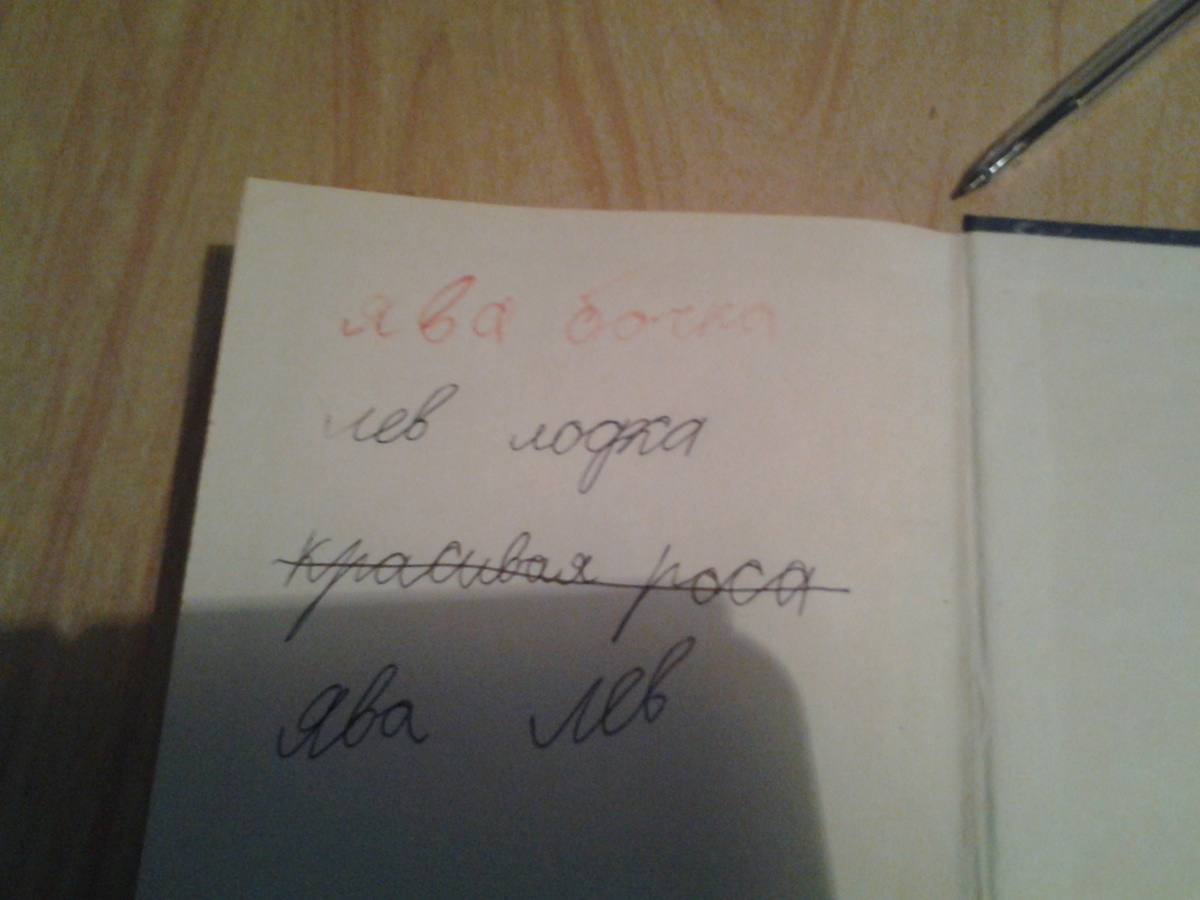 ява бочка
лев лодка
красивая роса
ява лев